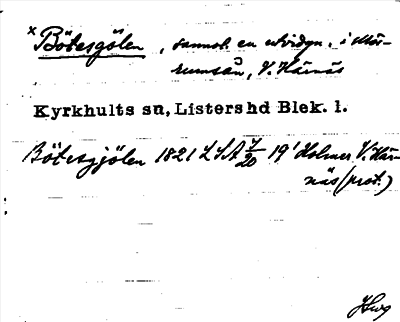 x Bötesgölen, sannol. en utvidgn. i Mör-
rumsån, V. Kärnäs
Kyrkhults sn, Listers hd Blek. l.
Bötesgjölen 1821 LSA 7/20 19' Holmer V. Kär-
näs (prot.)